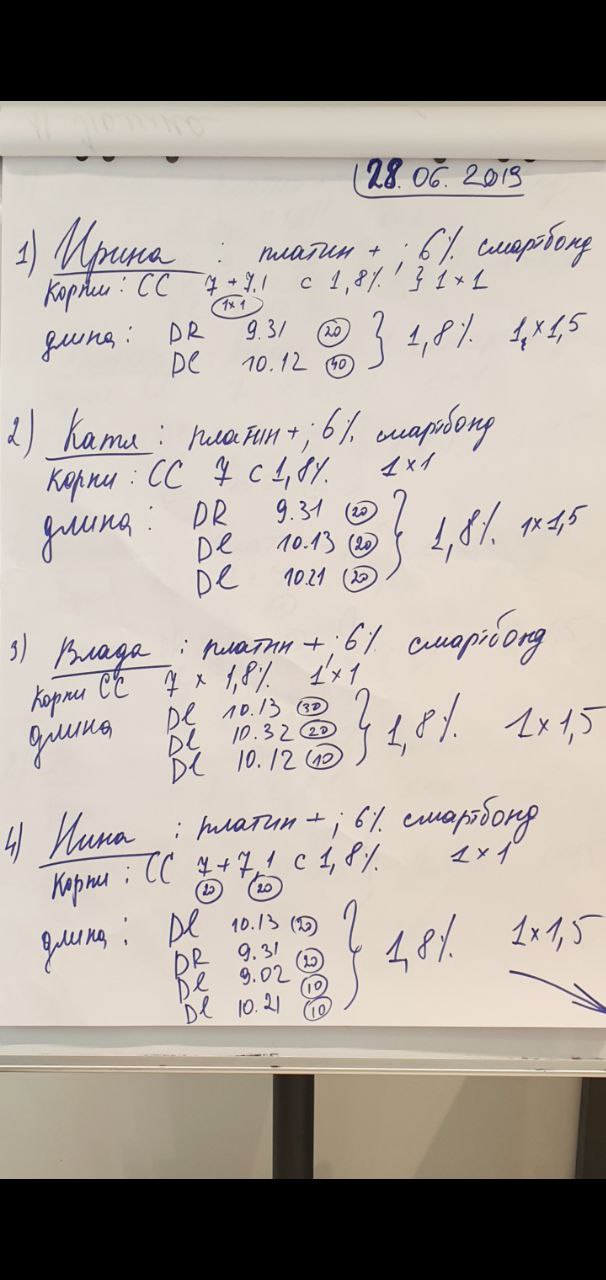 28.06.2019
1) Ирина : платин + ; 6% смартбонд
Корни : СС 7 + 7.1 с 1,8% } 1 x 1
1x1
длина : DR 9.31 (20) } 1,8% 1 x 1,5
Dl 10.12 (40)
2) Катя : платин + ; 6% смартбонд
Корни : СС 7 с 1,8% 1 x 1
длина : DR 9.31 (20) } 1,8% 1 x 1,5
Dl 10.13 (20)
Dl 10.21 (20)
3) Влада : платин + ; 6% смартбонд
Корни СС 7 x 1,8% 1 x 1
длина Dl 10.13 (30) } 1,8% 1 x 1,5
Dl 10.32 (20)
Dl 10.12 (10)
4) Нина : платин + ; 6% смартбонд
Корни : СС 7 + 7,1 с 1,8% 1 x 1
(20) (20)
длина : Dl 10.13 (20) } 1,8% 1 x 1,5
DR 9.31 (20)
Dl 9.02 (10)
Dl 10.21 (10)